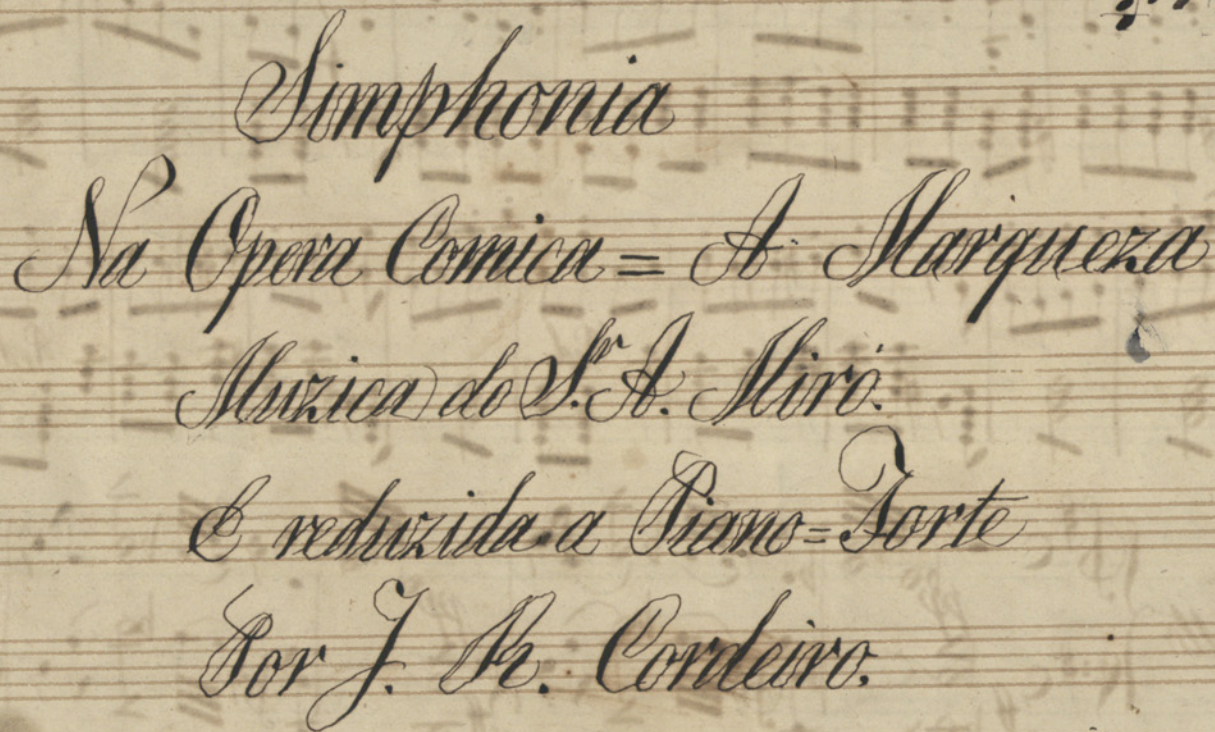 Simphonia
Na Opera Comica = A Marqueza
Muzica do Sr. A. Miró.
E reduzida a Piano=Forte
Por J. R. Cordeiro.